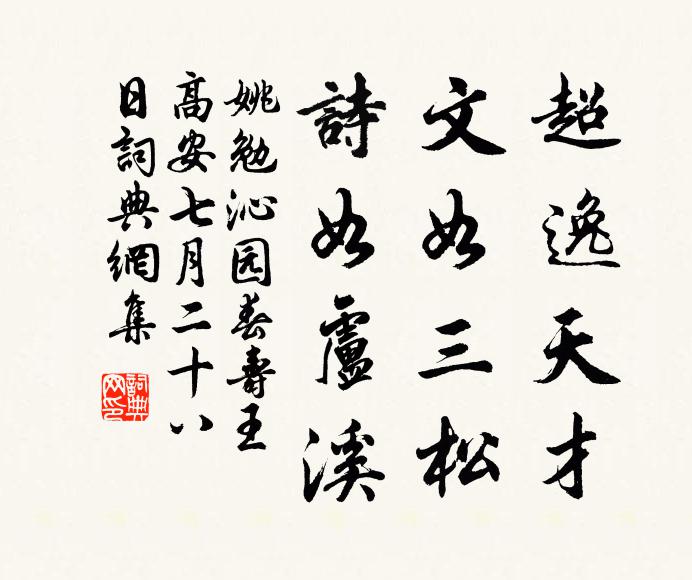 超逸天才
文如三松
詩如盧溪
姚勉沁园春壽王
高安七月二十八
日詞典網集
詞典
网印